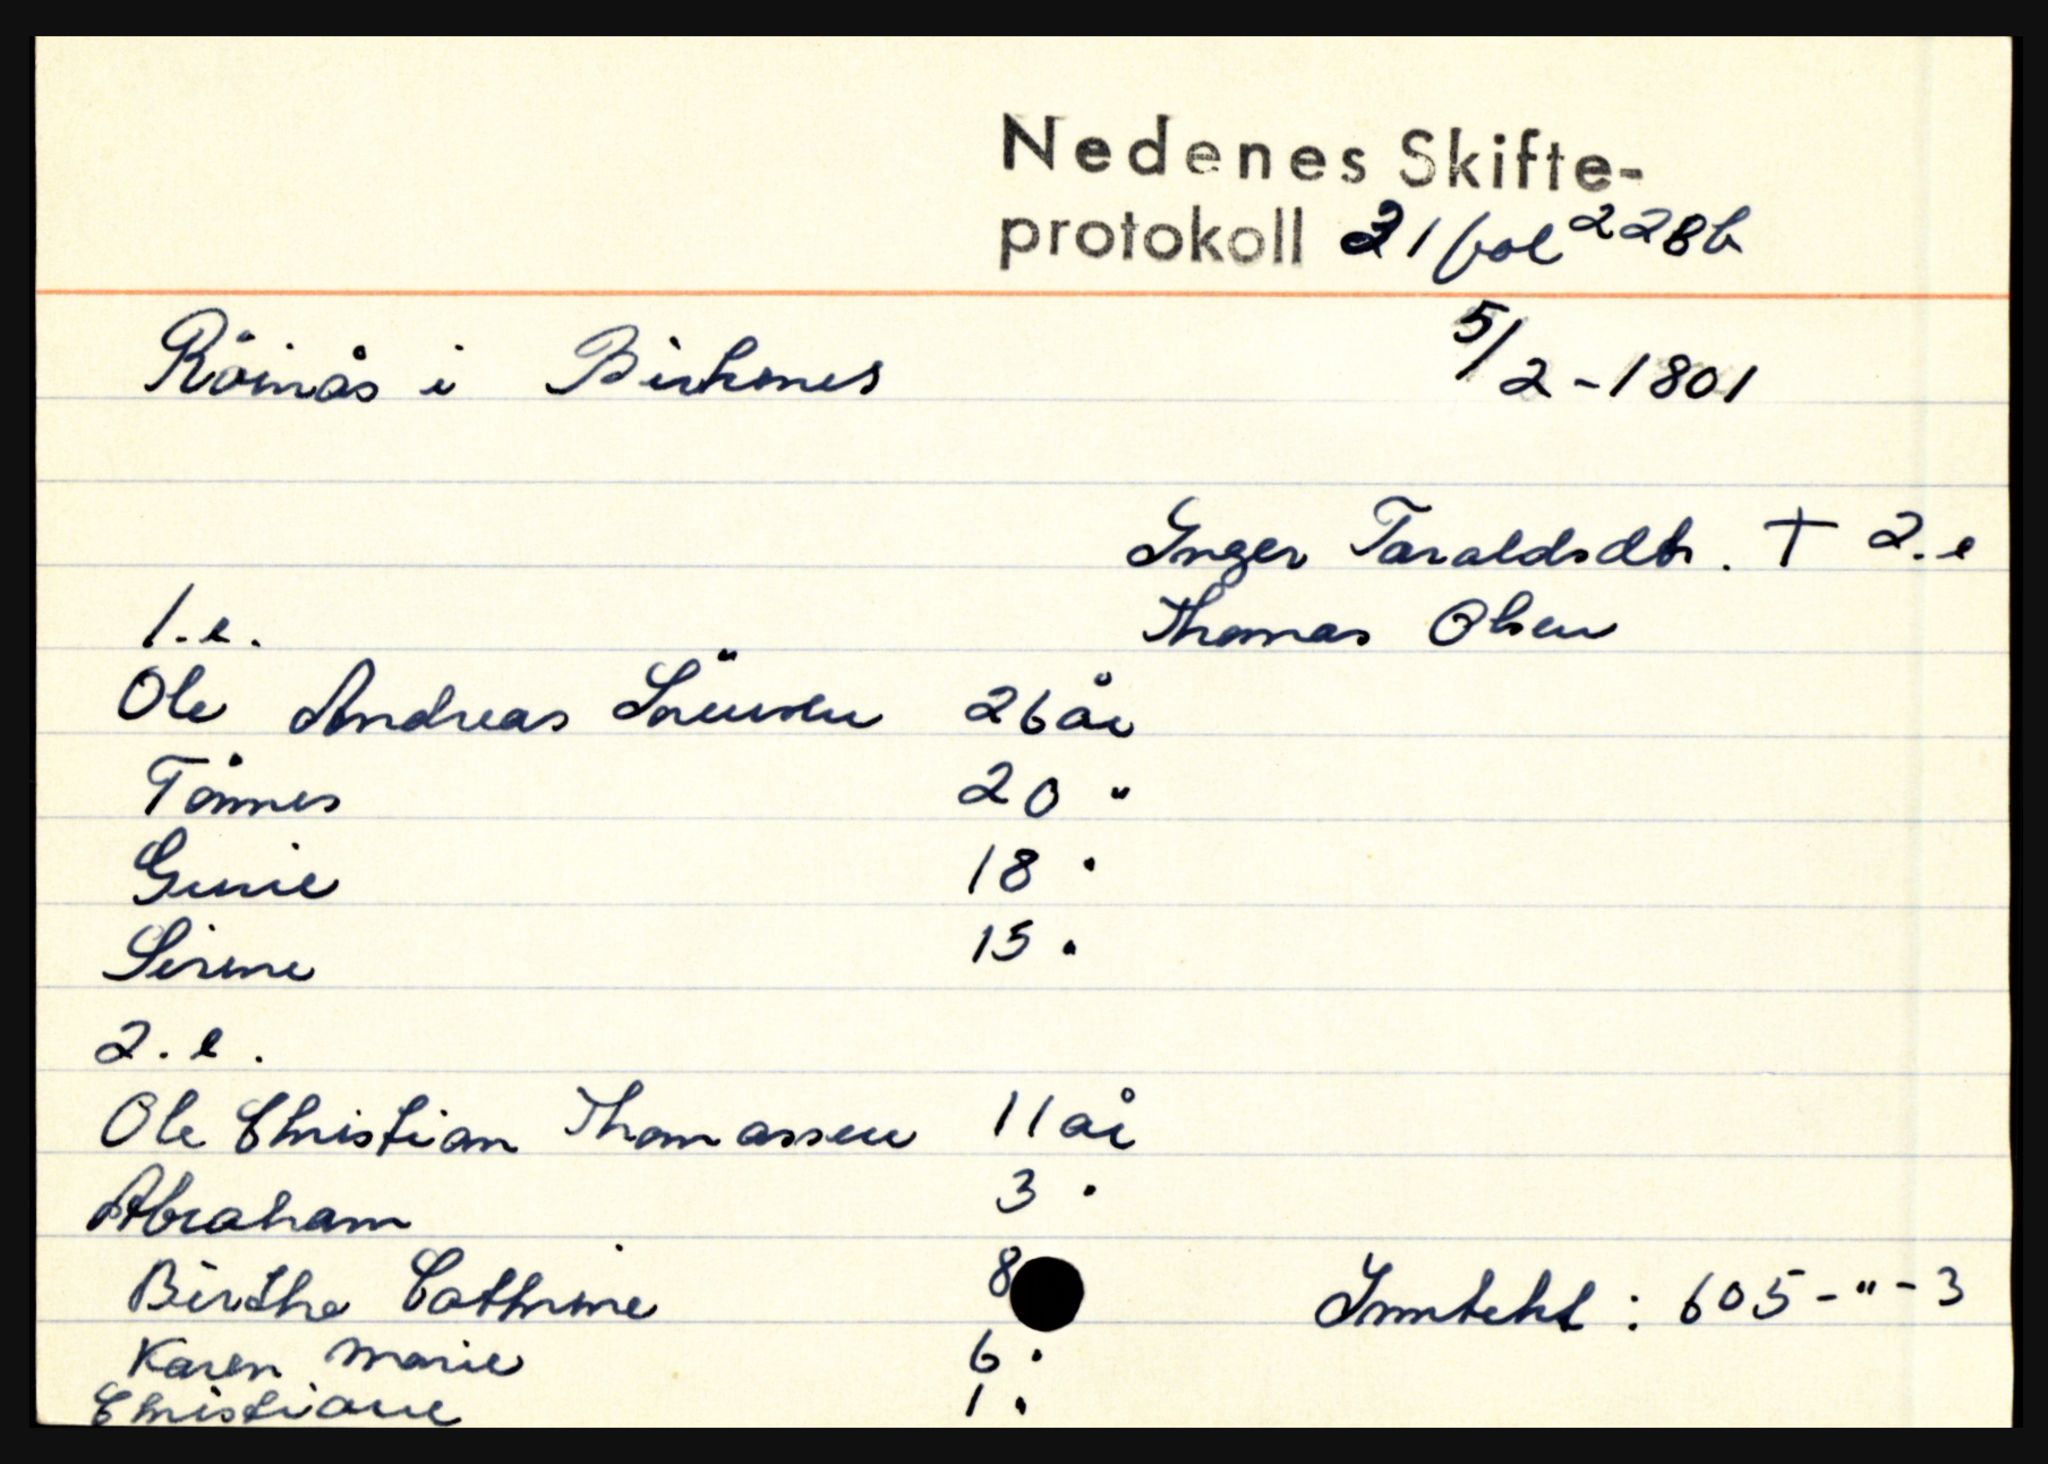 Nedenes Skifte-
protokoll 21 fol 228b
Röinås i Birkenes 5/2-1801
Inger Taraldsdtr. † 2.e
1.e. Thomas Olsen
Ole Andreas Sörensen 26 år
Tönnes 20 "
Gunie 18 "
Sirene 15 "
2.e.
Ole Christian Thomassen 11 år
Abraham 3 "
Birthe Cathrine 8
Karen Marie 6 "
Christiane 1 "
Inntekt: 605-"-3